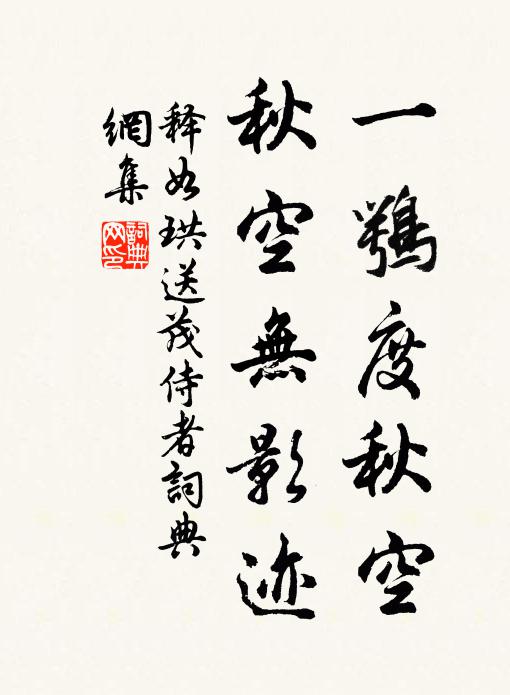 一鶚度秋空
秋空無影迹
释如珙送茂侍者詞典
網集
詞典
网印